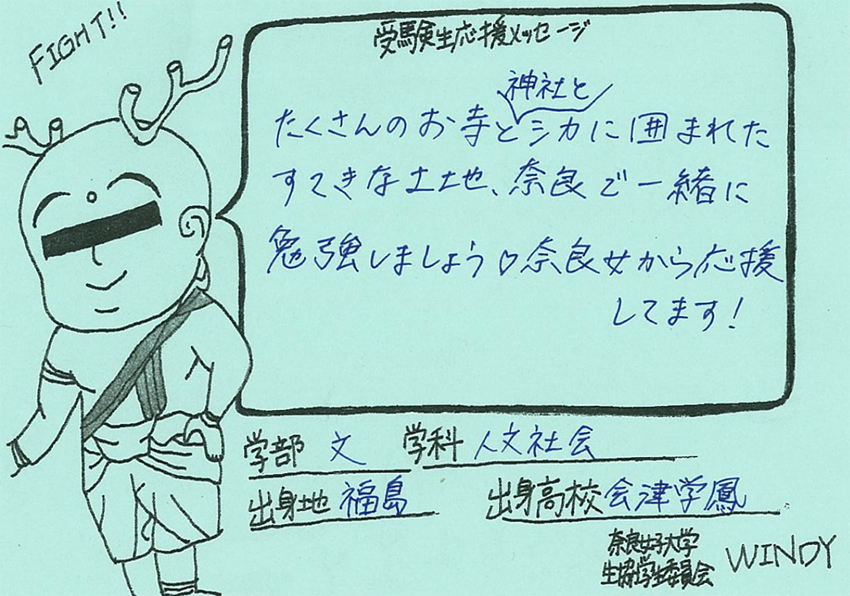 FIGHT!!
受験生応援メッセージ
たくさんのお寺と神社とシカに囲まれた
すてきな土地、奈良で一緒に
勉強しましょう♡奈良女から応援
してます!
学部 文 学科 人文社会
出身地 福島 出身高校 会津学鳳
奈良女子大学
生協学生委員会 WINDY